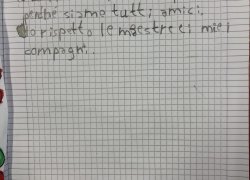 perche siamo tutti amici.
Io rispetto le maestre e i miei
compagni.